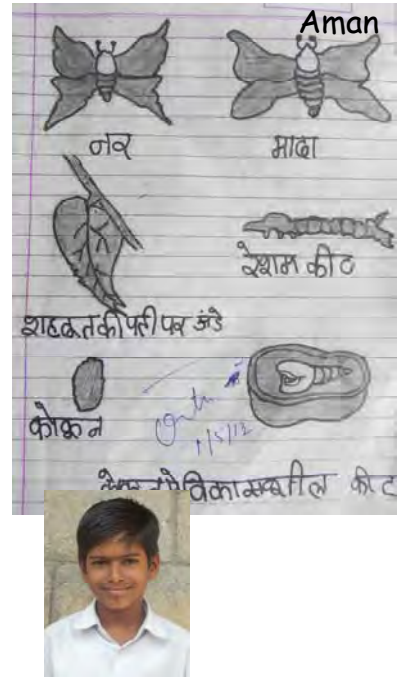 Aman
नर मादा
रेशम कीट
शहतूत की पत्ती पर अंडे
कोकून
1/5/12
विकासशील कीट